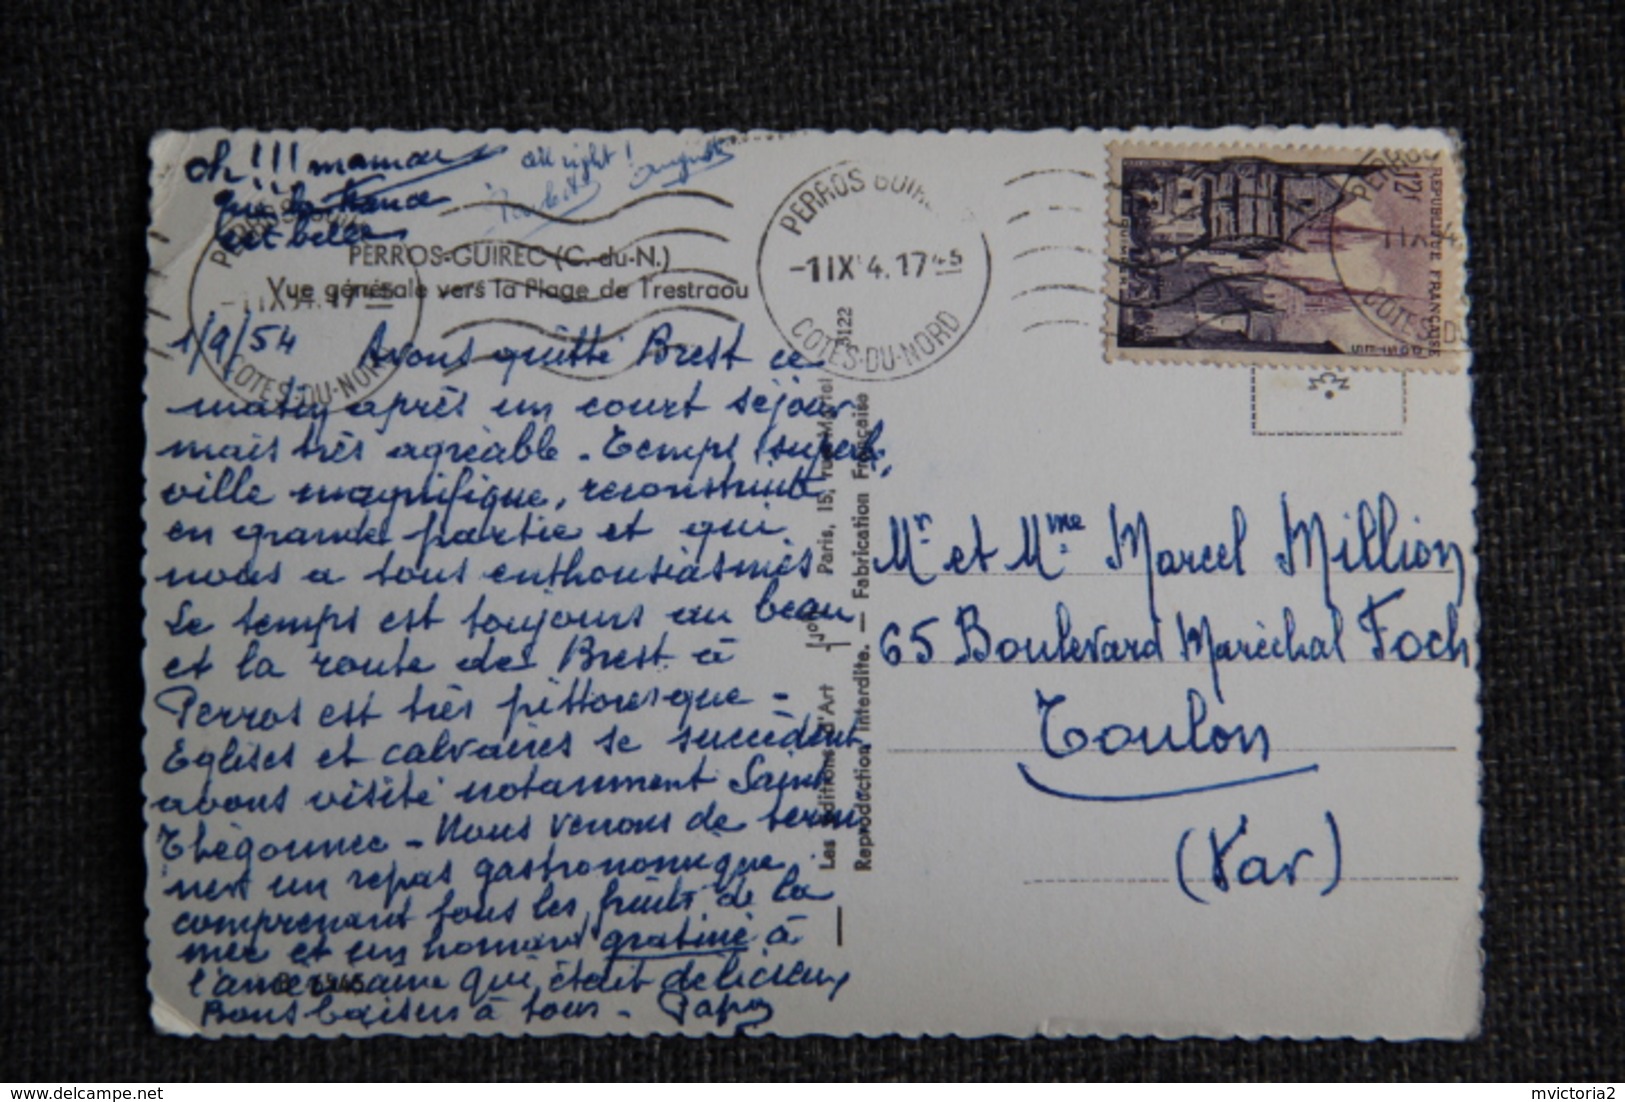 oh !!! maman
que la France
est belle
All right !
PERROS-GUIREC (C.-du-N.)
Vue générale vers la Plage de Trestraou
1/9/54 Avons quitté Brest ce
matin après un court séjour
mais très agréable - Temps superbe,
ville magnifique, reconstruite
en grande partie et qui
nous a tous enthousiasmés
Le temps est toujours au beau
et la route de Brest à
Perros est très pittoresque -
Eglises et calvaires se succèdent
avons visité notamment Saint
Thégonnec - Nous venons de termi
ner un repas gastronomique
comprenant tous les fruits de la
mer et un homard gratiné à
l'américaine qui était délicieux
Bons baisers à tous - Papa
PERROS GUIREC
-1 IX 54. 17 45
COTES-DU-NORD
PERROS GUIREC
-1 IX 54. 17 45
COTES-DU-NORD
3122
Les Editions d'Art Paris, 15, rue Martel
Reproduction interdite. — Fabrication Française
REPUBLIQUE FRANÇAISE
12F
QUIMPER
Mr et Mme Marcel Million
65 Boulevard Maréchal Foch
Toulon
(Var)
mvictoria2